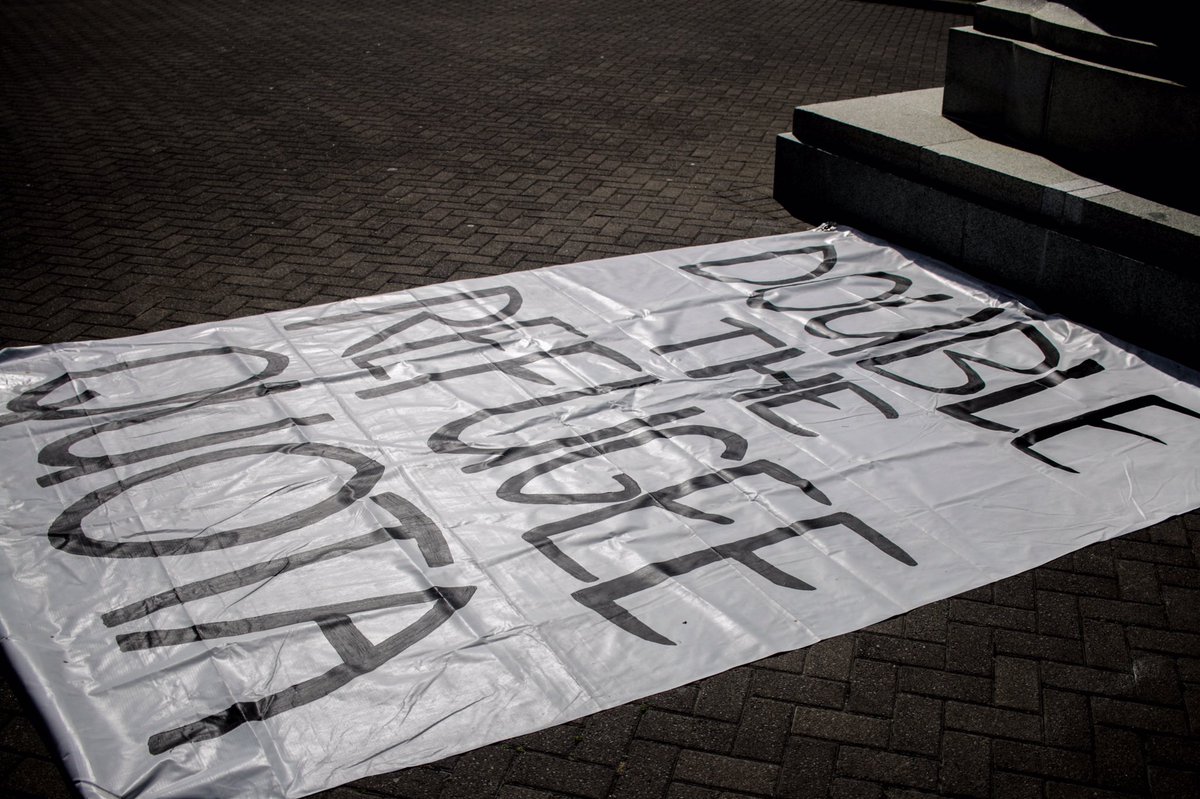 DOUBLE
THE
REFUGEE
QUOTA